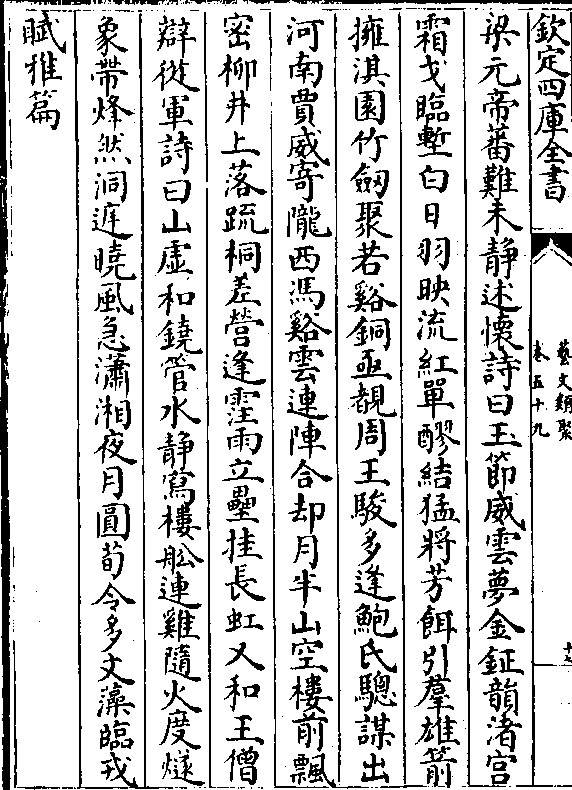 欽定四庫全書
藝文類聚
卷五十九
梁元帝蕃難未靜述懷詩曰玉節威雲夢金鉦韻渚宮
霜戈臨塹白日羽映流紅單醪結猛將芳餌引羣雄箭
擁淇園竹劒聚若谿銅亟覩周王駿多逢鮑氏驄謀出
河南賈威寄隴西馮谿雲連陣合却月半山空樓前飄
密柳井上落疏桐差營逢霔雨立壘挂長虹又和王僧
辯從軍詩曰山虛和鐃管水靜寫樓舩連雞隨火度燧
象帶烽然洞遲曉風急瀟湘夜月圓荀令多文藻臨戎
賦雅篇